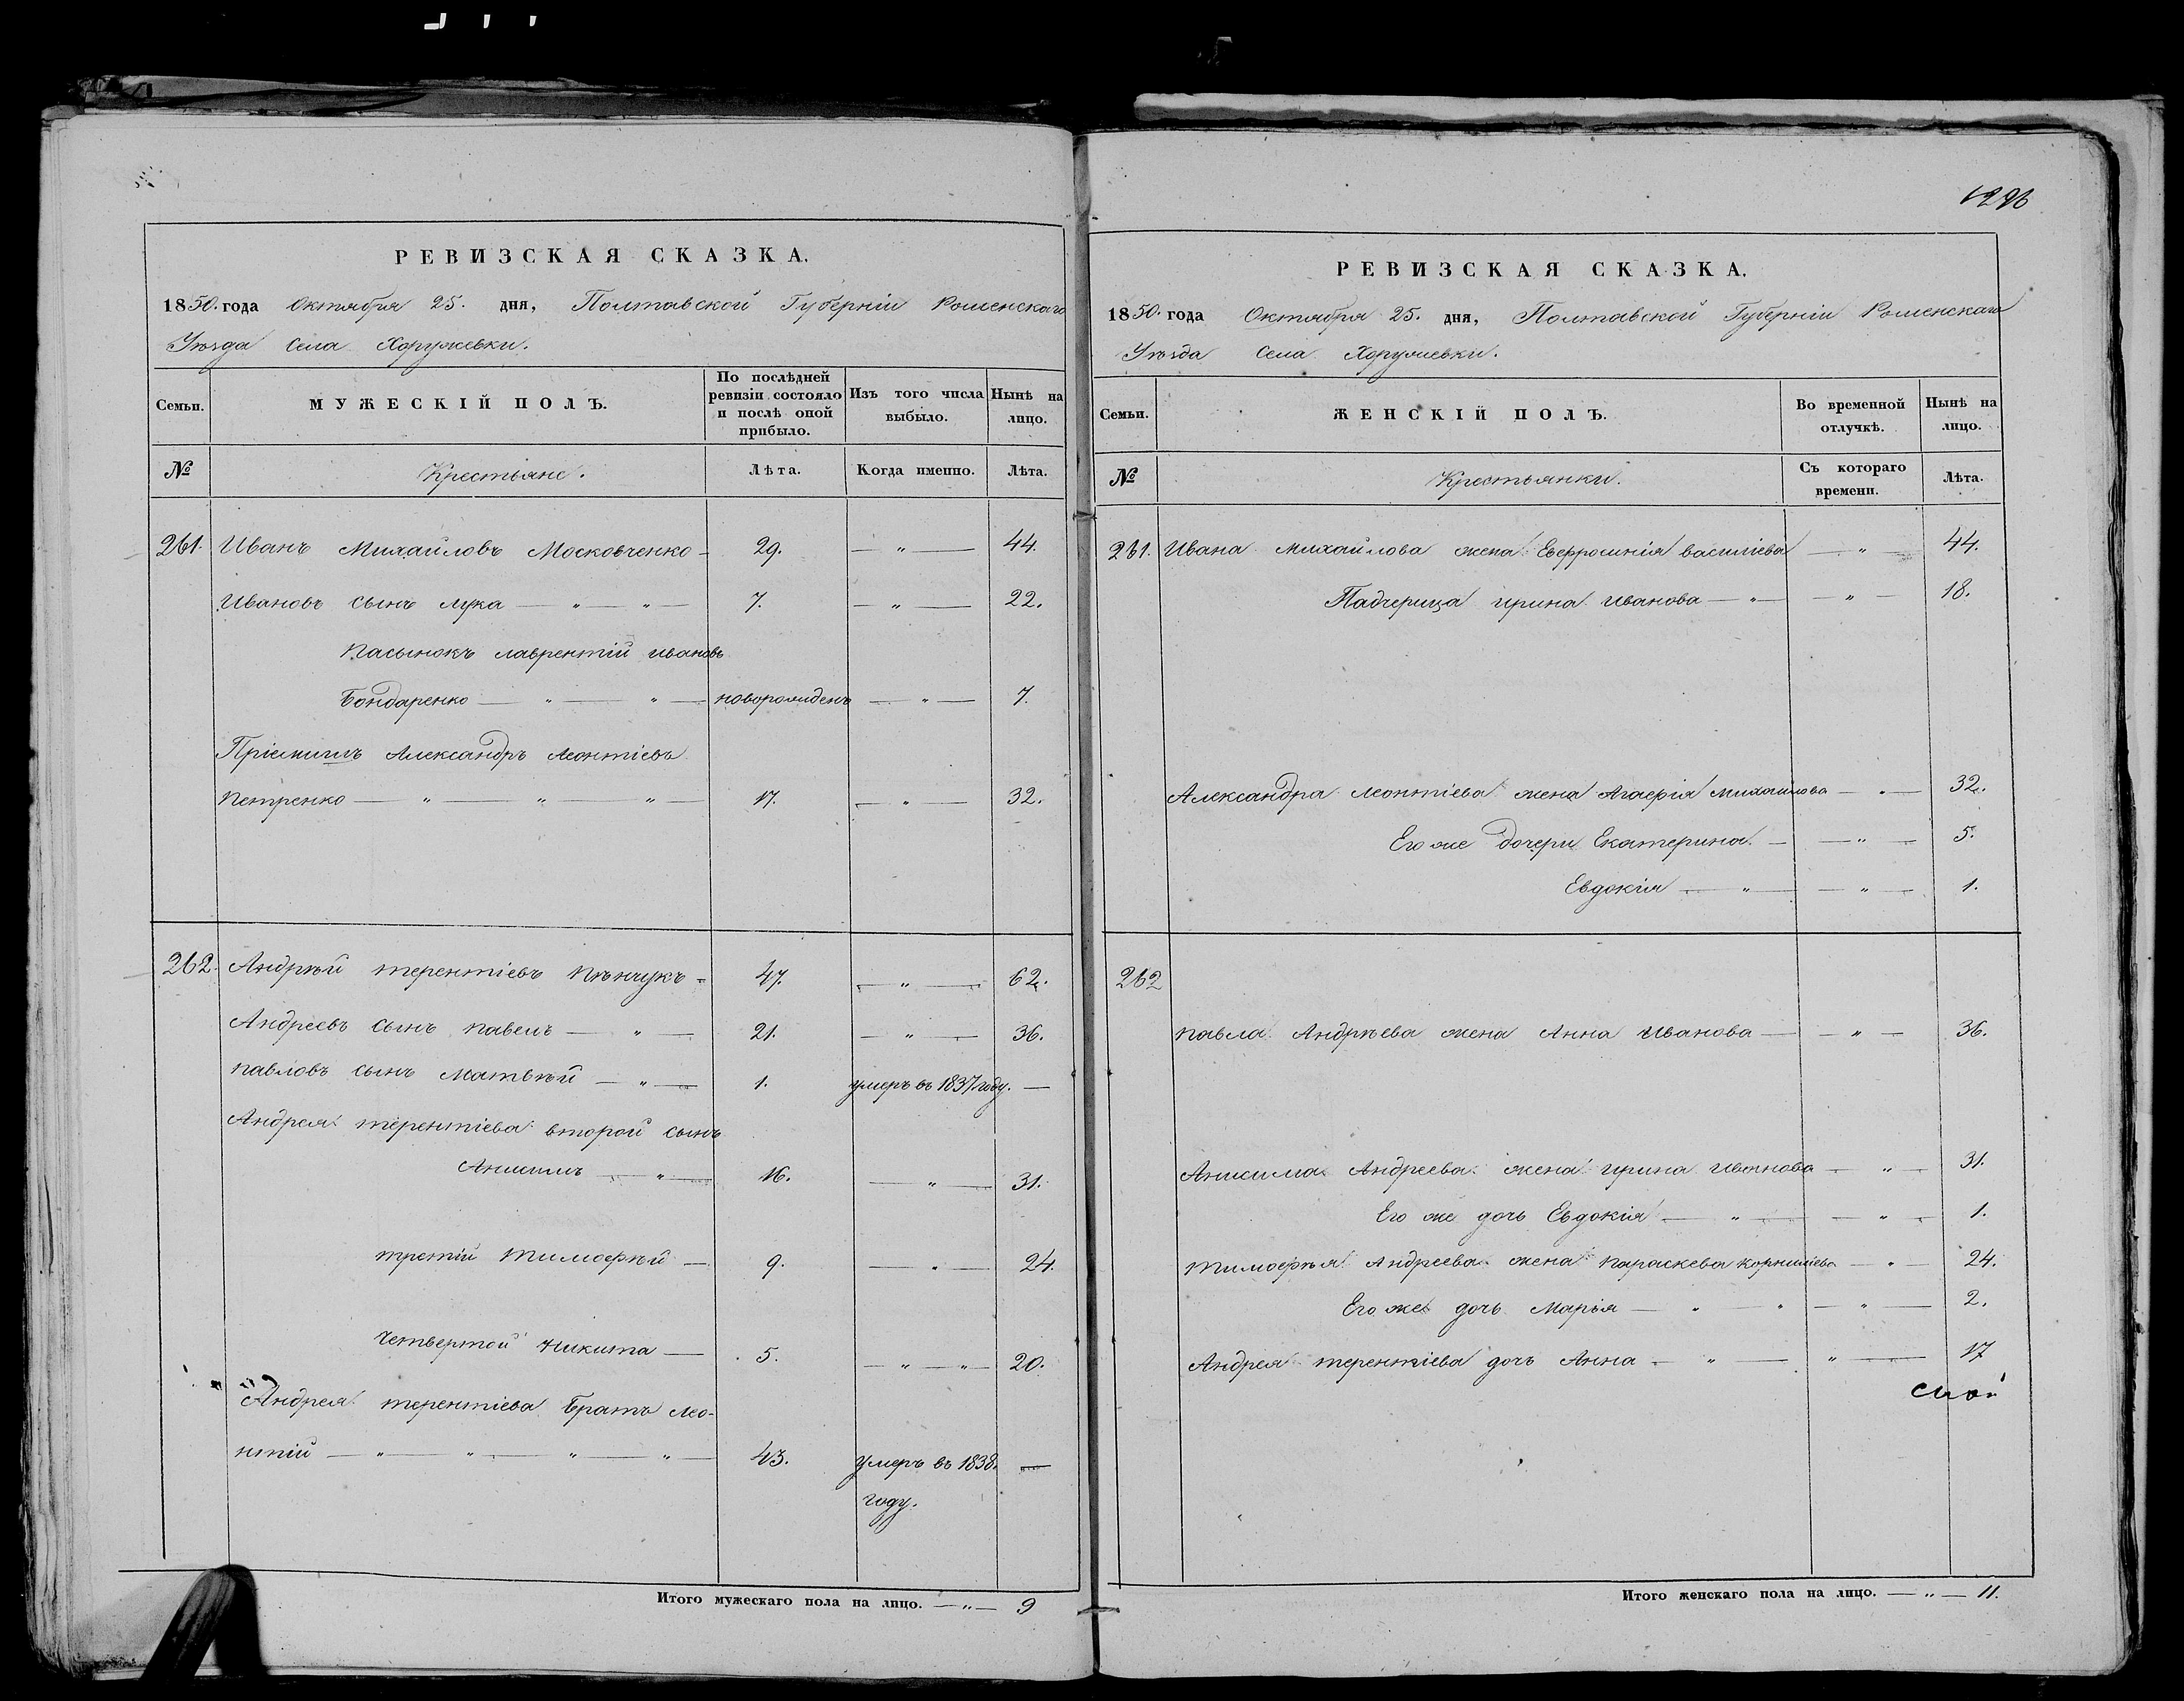 1296
РЕВИЗСКАЯ СКАЗКА.
1850. года Октября 25. дня, Полтавской Губерніи Роменскаго
Уѣзда Села Хоружевки.
Семьи.
МУЖЕСКІЙ ПОЛЪ.
По послѣдней ревизіи состояло и послѣ оной прибыло.
Изъ того числа выбыло.
Нынѣ на лицо.
№ Крестьяне. Лѣта. Когда именно. Лѣта.
261. Иванъ Михайловъ Московченко — 29. — „ — 44.
Ивановъ сынъ лука — „ — „ — 7. — „ — 22.
Пасынокъ лаврентій ивановъ
Бондаренко — „ — „ — новорожденъ — „ — 7.
Пріемышъ Александръ Леонтіевъ
Петренко — „ — „ — „ — 17. — „ — 32.
262. Андрѣй терентіевъ 47. — „ — 62.
Андреевъ сынъ павелъ — „ — 21. — „ — 36.
павловъ сынъ Матвѣй — „ — 1. умеръ въ 1837 году. —
Андрея терентіева второй сынъ
Анисимъ — „ — 16. — „ — 31.
третій Тимофѣй — 9. — „ — 24.
четвертой Никита — 5. — „ — „ — 20.
Андрея терентіева Братъ лео-
нтій — „ — „ — „ — „ — 43. умеръ въ 1838. —
году.
Итого мужескаго пола на лицо. — „ — 9
РЕВИЗСКАЯ СКАЗКА.
1850. года Октября 25. дня, Полтавской Губерніи Роменскаго
Уѣзда Села Хоружевки.
Семьи.
ЖЕНСКІЙ ПОЛЪ.
Во временной отлучкѣ.
Нынѣ на лицо.
№ Крестьянки. Съ котораго времени. Лѣта.
261. Ивана михайлова жена Евфросинія василіева — „ — 44.
Падчерица ирина иванова — „ — — „ — 18.
Александра леонтіева жена Агафія михайлова — „ — 32.
Его же дочери Екатерина. — — „ — 5.
Евдокія — „ — — „ — 1.
262
павла Андрѣева жена Анна Иванова — — „ — 36.
Анисима Андреева жена ирина иванова — „ — 31.
Его же дочь Евдокія — „ — — „ — 1.
Тимофѣя Андреева жена параскева корниліева — „ — 24.
Его же дочь Марья — „ — „ — „ — 2.
Андрея терентіева дочь Анна — „ — „ — 17
Итого женскаго пола на лицо. — „ — 11.